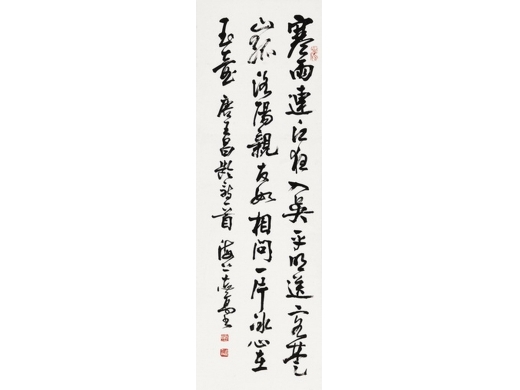 寒雨連江夜入吳平明送客楚
山孤洛陽親友如相問一片冰心在
玉壺 唐王昌齡詩一首 海上